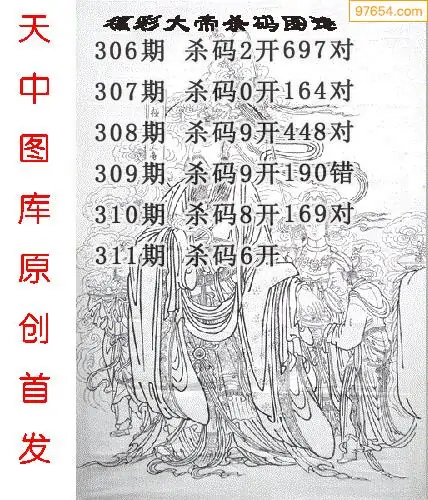 97654.com
福彩大帝杀码图谜
306期 杀码2开697对
307期 杀码0开164对
308期 杀码9开448对
309期 杀码9开190错
310期 杀码8开169对
311期 杀码6开
天中图库原创首发